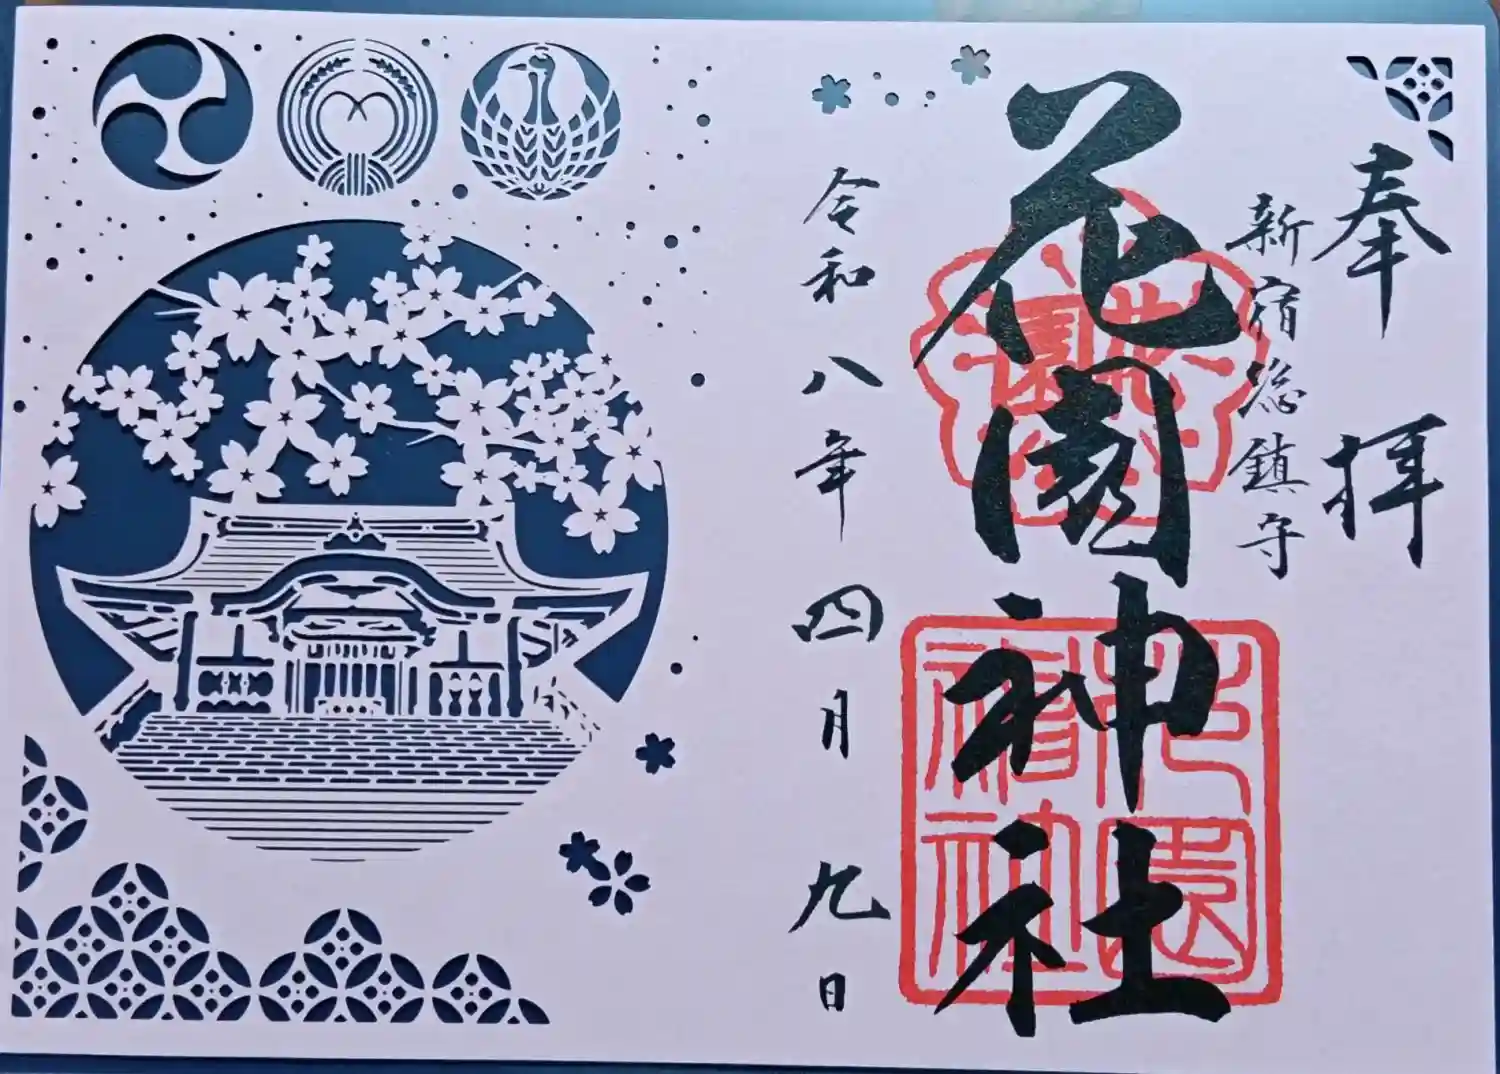 奉拝
新宿総鎮守
花園神社
花園
花園神社
令和八年四月九日